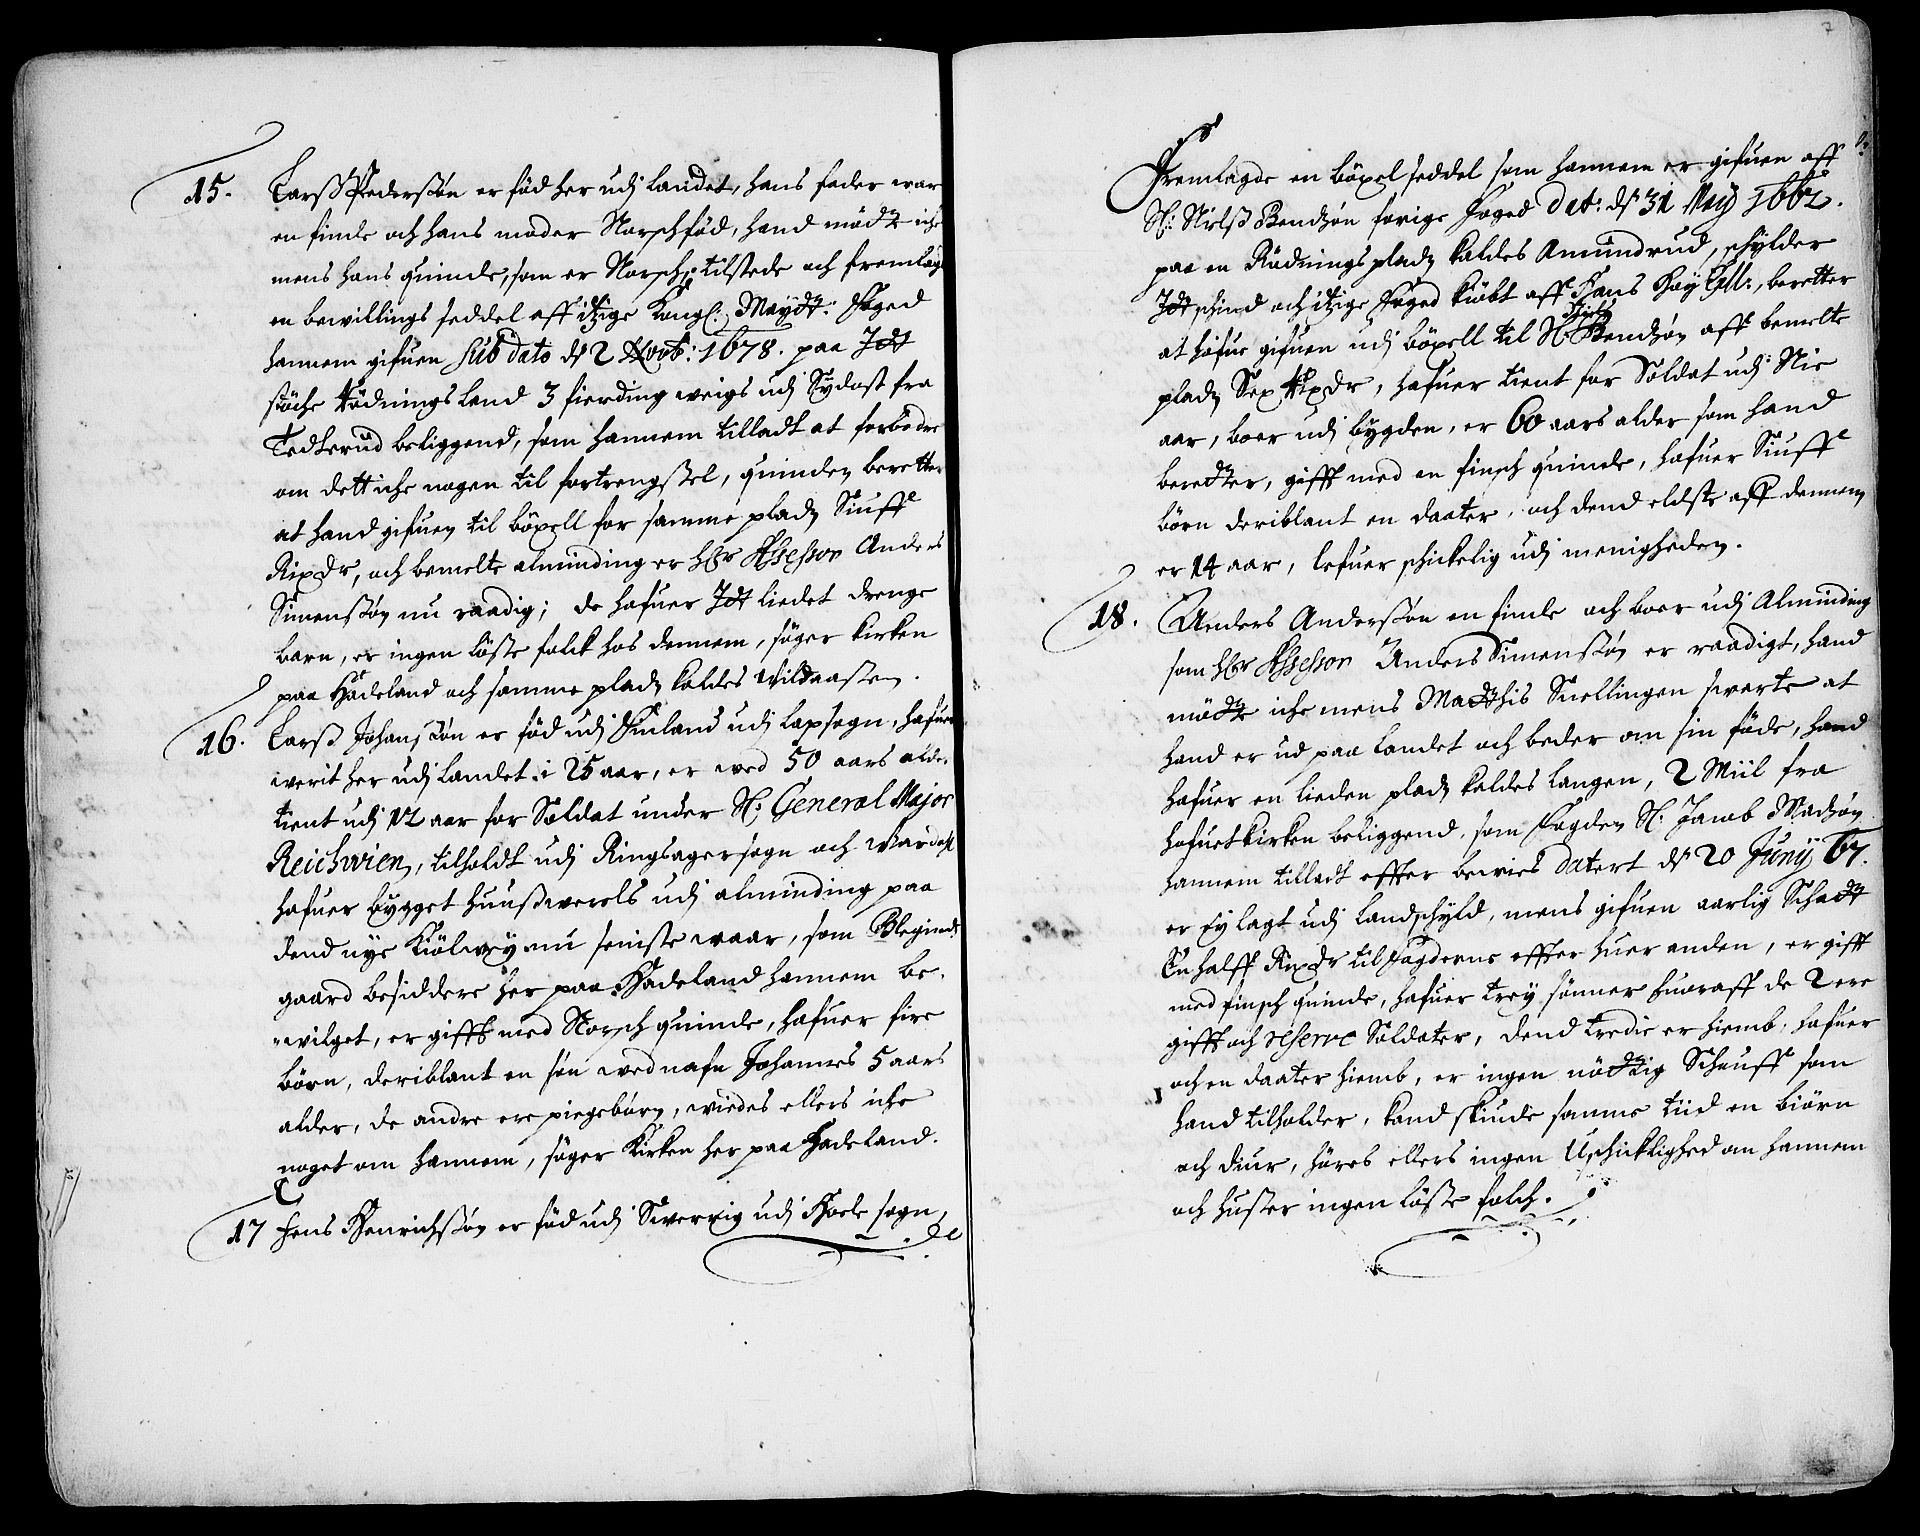 15. Larss Pederssøn er fød her udj landet, hans fader war
en finde och hans moder Norsch fød, hand mødte iche
mens hans quinde, som er Norsch, tilstede och fremlagde
en bewillings seddel aff itzige Kongl: Maÿdts: Foged
hannem gifuen sub dato ds 2 Novb: 1678. paa Idt
støche Rødnings land 3 fierding weigs udj Sydost fra
beliggend, som hannem tilladt at forbødre
om dett iche nogen til fortrengssel, quinden beretter
at hand gifuen til böxell for samme pladz Siuff
Rixdr, och bemelte alminding er hr Assessor Anders
Simenssøn nu raadig; de hafuer Idt liedet drenge
barn, er ingen løsse folck hos dennem, søger kirken
paa Hadeland och samme pladz kaldes Wildaasen.
16. Larss Johanssøn er fød udj Finland udj Lapsogn, hafuer
werit her udj landet i 25 aar, er wed 50 aars alder
tient udj 12 aar for Soldat under Sl: General Major
Reichwien, tilholdt udj Ringsagersogn och Wardahl
hafuer bygget huusswerels udj alminding paa
dend nye Kiølweÿ nu seniste waar, som Bleginds
gaard besiddere her paa Hadeland hannem be-
wilget, er gifft med Norsch quinde, hafuer fire
børn, deriblant en søn wed nafn Johannes 5 aars
alder, de andre ere piegebørn, wiedes ellers iche
noget om hannem, søger Kirken her paa Hadeland.
17 Jens Henrichssøn er fød udj Swerrig udj sogn,
7
Fremlagde en böxel seddel som hannem er gifuen aff
Sl: Nielss Bendzøn forige Foged dat: ds 31 Maÿ 1662.
paa en Rødnings pladz kaldes Amundrud, schylder
Idt schind och itzige Foged kiøbt aff Hans beretter
at hafue gifuen udj böxell til Sl: Niels Bendzøn aff bemelte
pladz Sex Rixdr, hafuer tient for Soldat udj Nie
aar, boer udj bygden, er 60 aars alder som hand
beretter, gifft med en finsch quinde, hafuer Siuff
børn deriblant en daater, och dend eldste aff dennem
er 14 aar, lefuer schickelig udj menigheden.
18. Anders Anderssøn en finde och boer udj Alminding
som hr Assessor Anders Simenssøn er raadigt, hand
mødte iche mens Matthis Snellingen swarte at
hand er ud paa landet och beder om sin føde, hand
hafuer en lieden pladz kaldes Langen, 2 Miil fra
hofuetkirken beliggend, som Fogden Sl: Jacob Madzøn
hannem tilladt effter bewies datert ds 20 Junÿ 67.
er eÿ lagt udj landschyld, mens gifuen aarlig Schatt
En halff Rixdr til Fogderne effter huer anden, er gifft
med finsch quinde, hafuer treÿ sønner huoraff de 2 ere
gifft och reserve Soldater, dend tredie er hiemb, hafuer
och en daater hiemb, er ingen nøttig Schouff som
hand tilholder, kand skiude somme tiid en biørn
och diur, høres ellers ingen Uschicklighed om hannem
och huser ingen løsse folch.